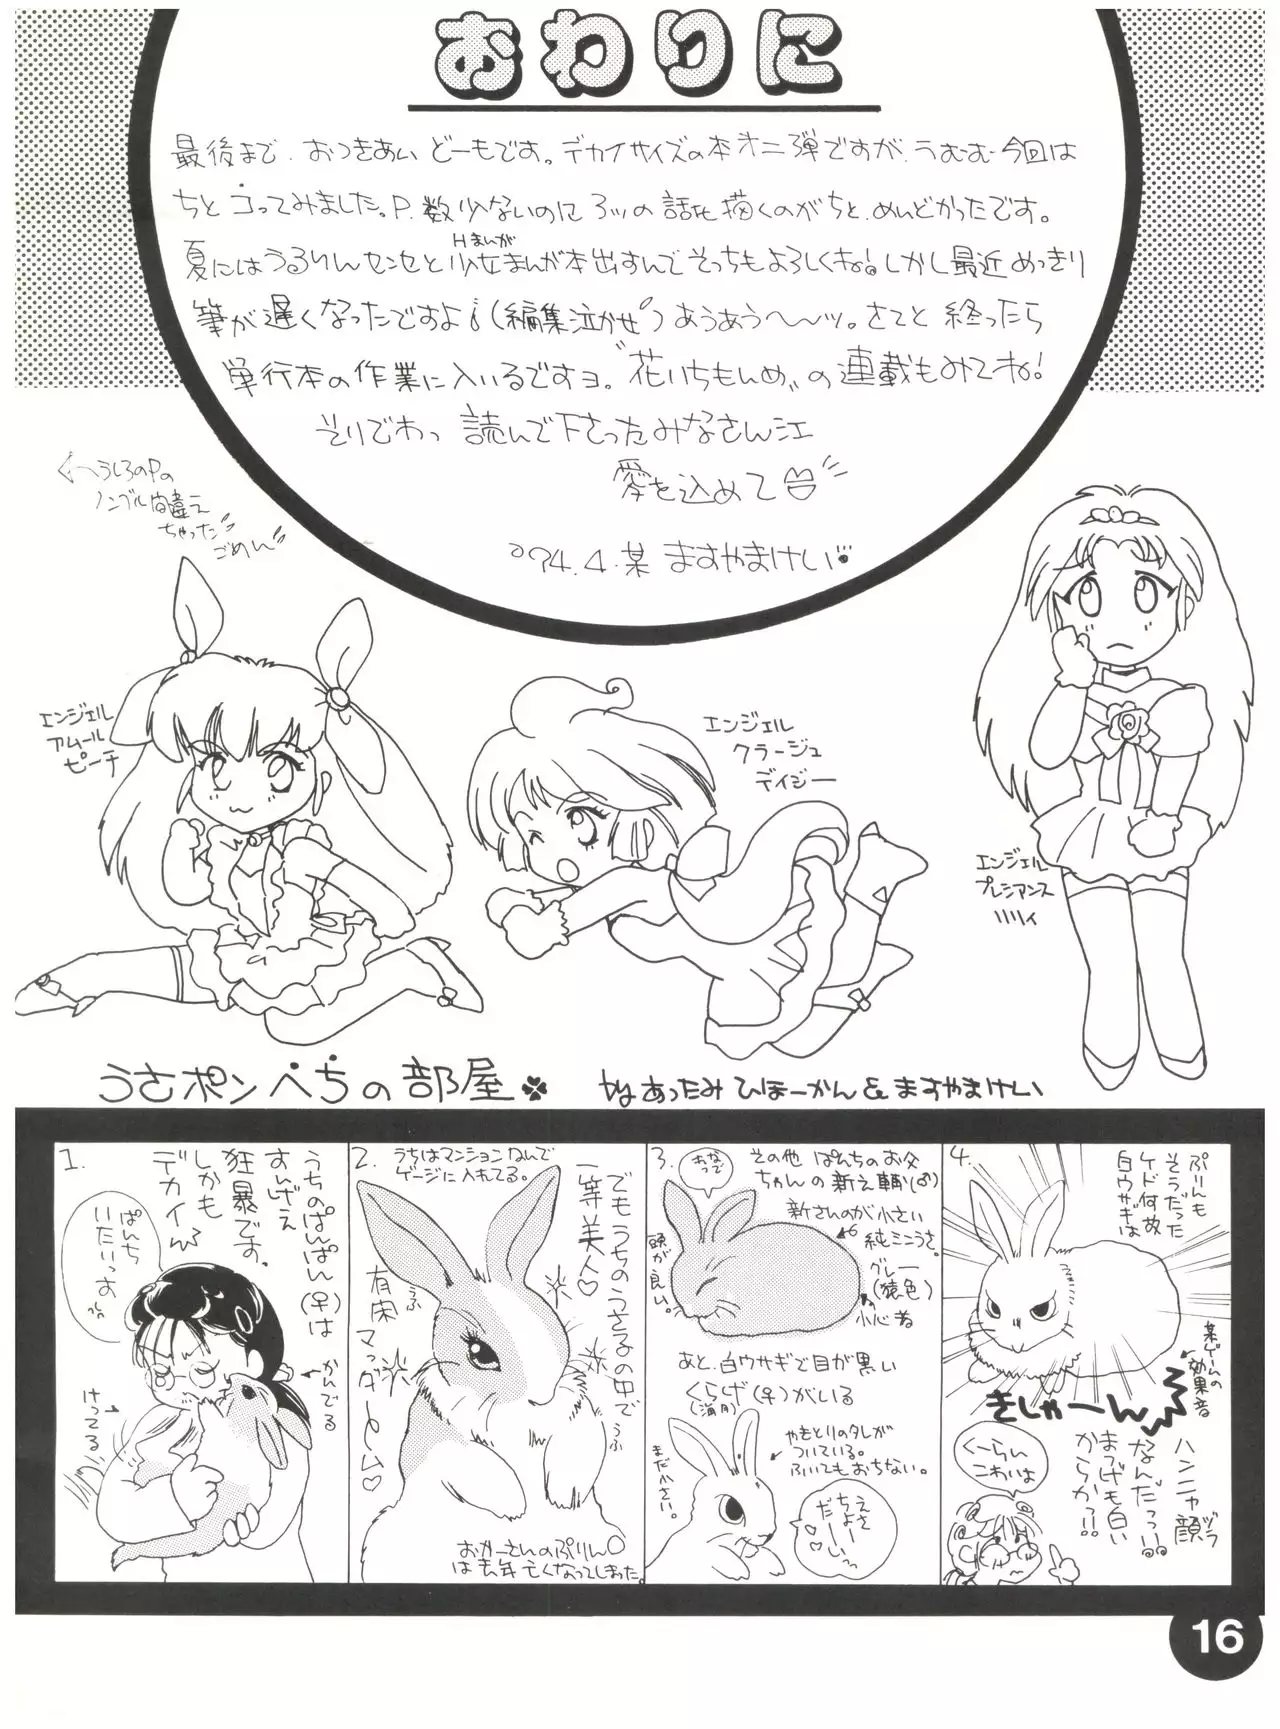 おわりに
最後まで、おつきあい どーもです。デカイサイズの本オニ弾ですが、うむむ今回は
ちと コってみました。P.数少ないのに 3ッの話も描くのがちと、めんどかったです。
Hまんが
夏にはうるりんセンセと少女まんが本出すんで そっちもよろしくね!しかし最近めっきり
筆が遅くなったですよ!(編集泣かせ)あうあう〜〜ッ。さてと 終ったら
単行本の作業に入いるですヨ。“花いちもんめ”の連載もみてね!
そりでわっ 読んで下さったみなさん江
愛を込めて♡
'94.4.某 ますやまけい
うしろのPの
ノンブル間違え
ちゃった
ごめん
エンジェル
アムール
ピーチ
エンジェル
クラージュ
デイジー
エンジェル
プレシアンス
リリィ
うさポンぺちの部屋
by あったみひほーかん & ますやまけい
1.
うちのぱんぱん(♀)は
すんげぇ
狂暴です。
しかも
デカイ
ぱんち
いたいっす
かんでる
けってる
2.
うちはマンションなんで
ゲージに入れてる。
でもうちのうさぎの中で
一等美人♡
うふ
うふ
有閑マッダーム♡
おかーさんのぷりん
は去年亡くなってしまった。
3.
その他 ぱんちのお父
ちゃんの新之輔(♂)
新さんのが小さい
純ミニうさ。
グレー
(猿色)
小心者
頭が良い。
あと、白ウサギで目が黒い
くらげ(♀)がいる
(海月)
やきとりのタレが
ついている。
ふいてもおちない。
まだ小さい。
4.
ぷりんも
そうだった
ケド何故
白ウサギは
某ゲームの
効果音
きしゃーん
ハンニャ顔
ヅラ
なんだっ!!
まつげも白い
からか?!!
くーらい
こわいよ
16